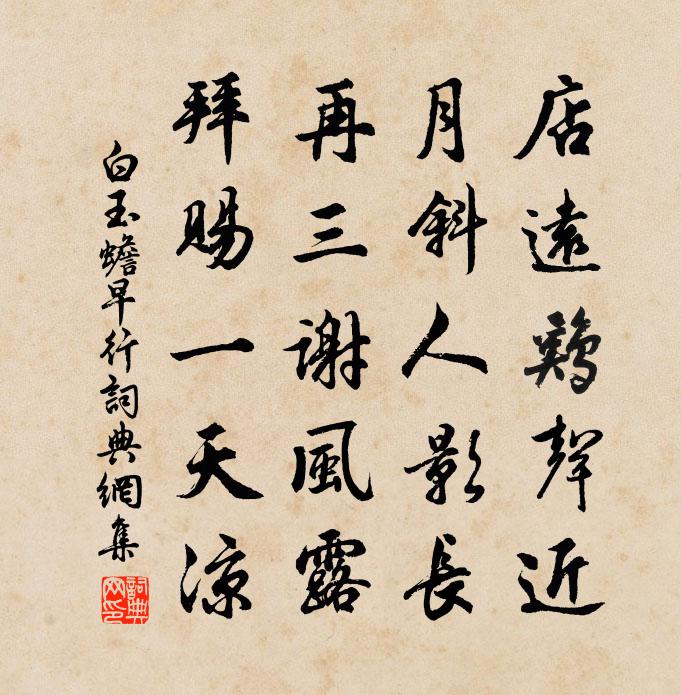 店遠鷄聲近
月斜人影長
再三謝風露
拜賜一天涼
白玉蟾早行詞典網集
詞典
网印